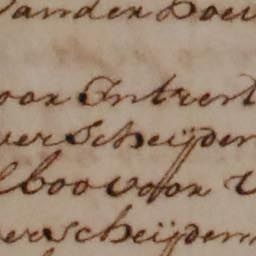 van den Boe
oor Intrert
verscheijden
lboo voor v
verscheijden